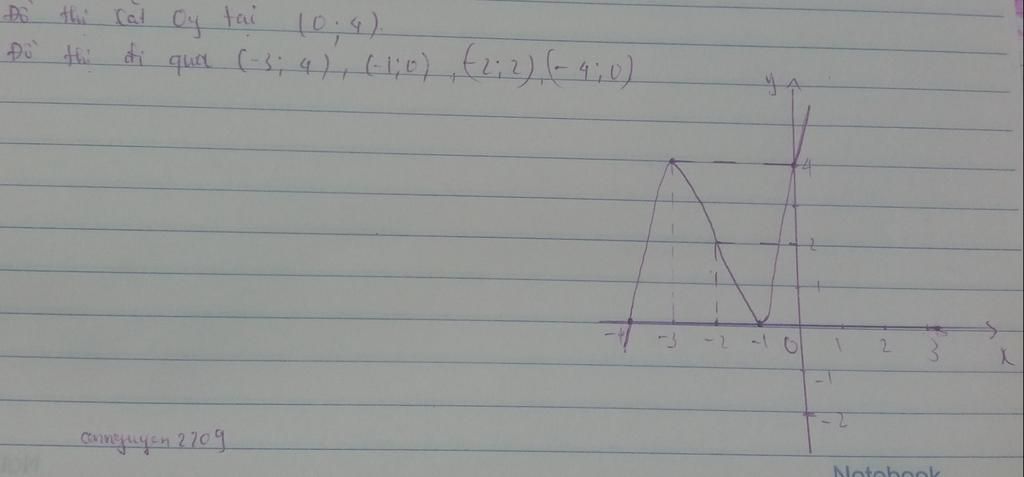 Đồ thị cắt Oy tại (0; 4).
Đồ thị đi qua (-3; 4), (-1; 0), (-2; 2), (-4; 0)
y
4
2
1
-4 -3 -2 -1 0 1 2 3 x
-1
-2
cannguyen2709
Notebook